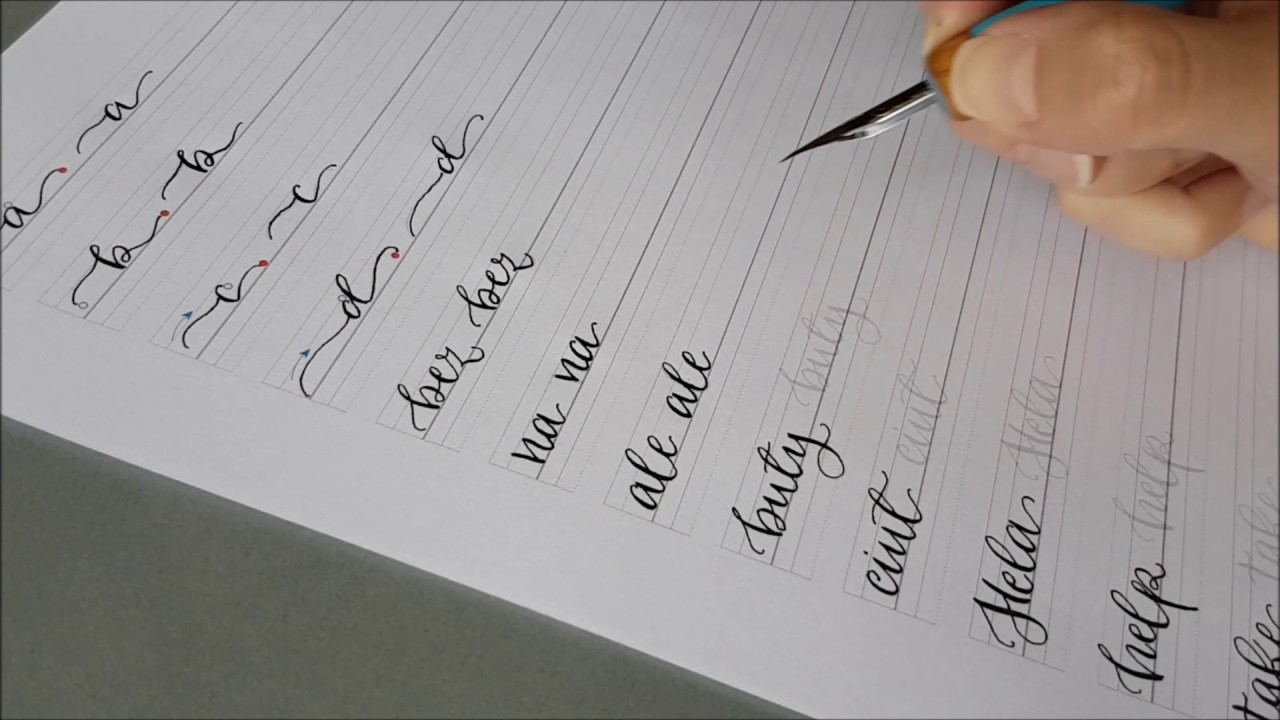 a a
b b
c c
d d
bez bez
na na
ale ale
buty buty
ciut ciut
Hela Hela
help help
take take